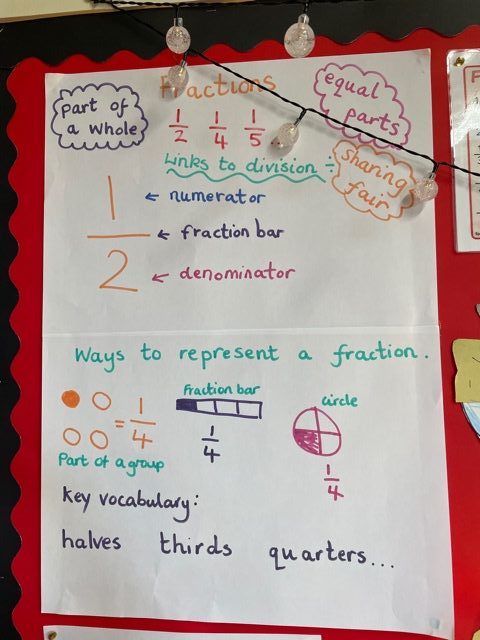 Fractions
part of
a whole
equal
parts
1/2 1/4 1/5
Links to division ÷
sharing
fair
1
2
← numerator
← fraction bar
← denominator
Ways to represent a fraction.
= 1/4
Part of a group
Fraction bar
1/4
circle
1/4
Key vocabulary:
halves thirds quarters...